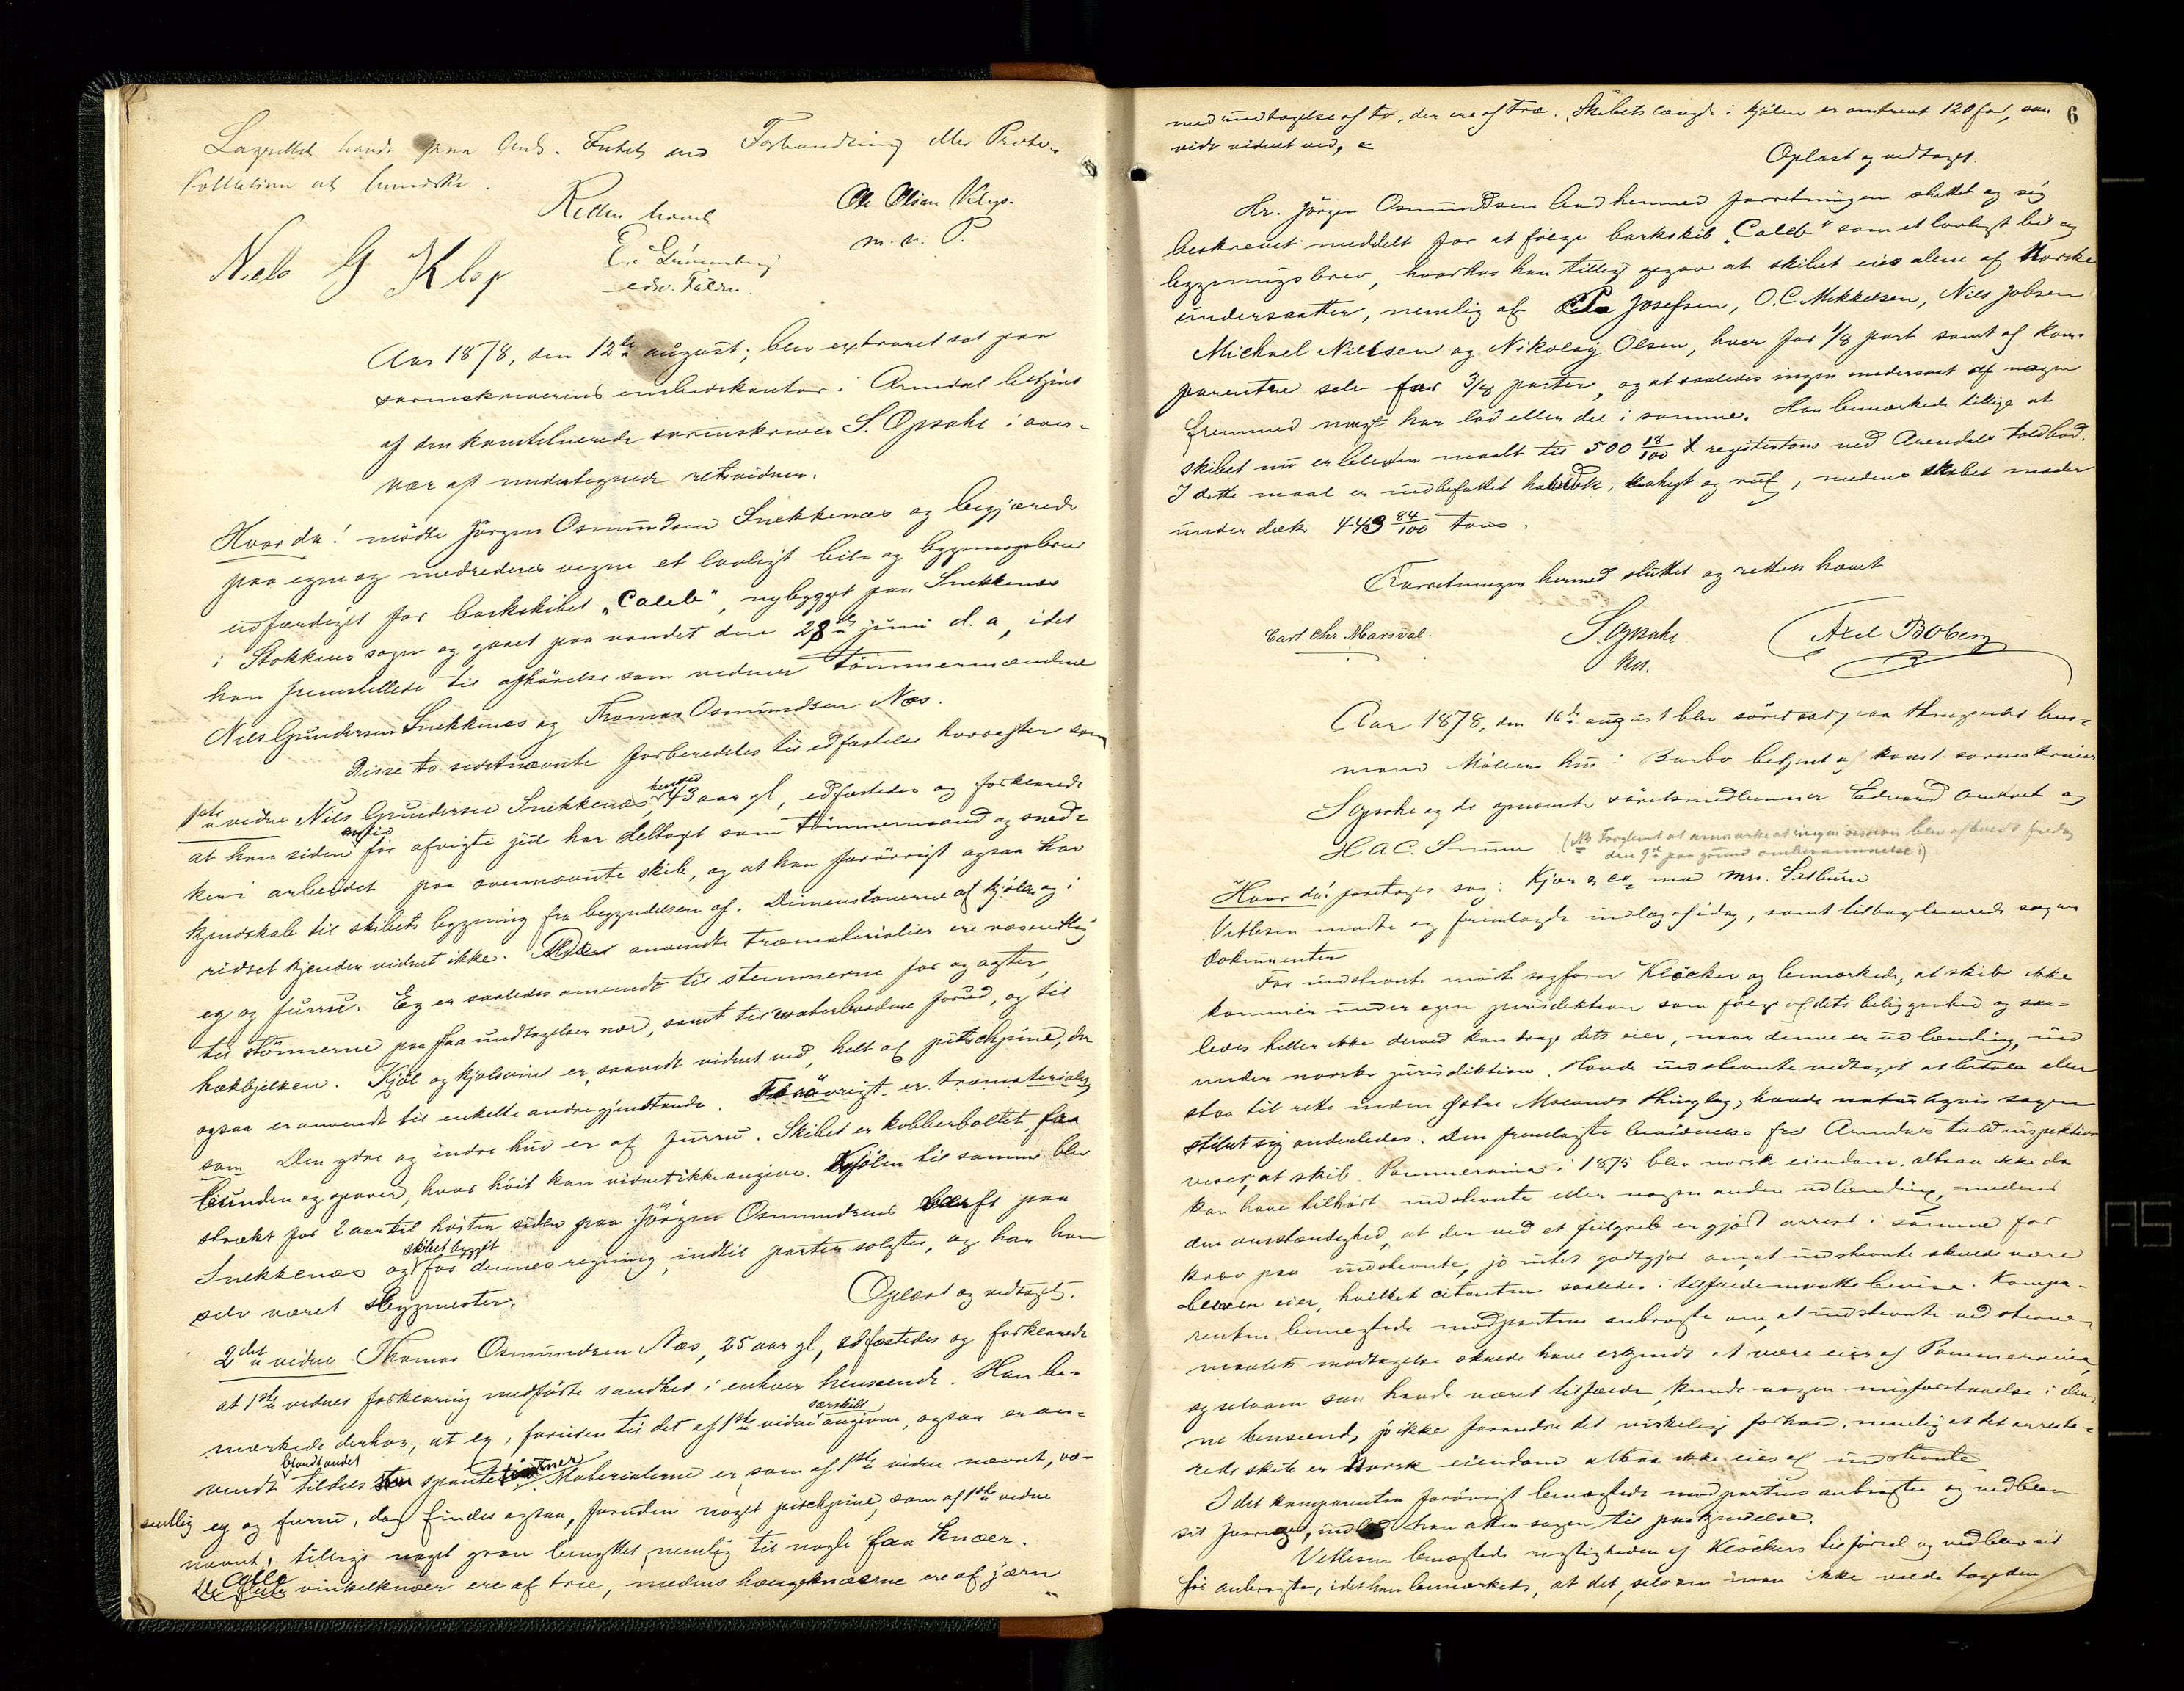 havde paa And. Intet ved Forhandling eller Proto-
kollationen at bemærke.
Retten hævet
Ole Olsen Klep.
m. v. P.
Niels G Klep
Aar 1878, den 12te august, blev extraret sat paa
sorenskriverens embedskontor i Arendal betjent
af den konstituerede sorenskriver S. Opsahl i over-
vær af undertegnede retsvidner.
Hvorda! mødte Jörgen Osmundsen Snekkenæs og begjærede
paa egne og medrederes vegne et lovligt bil- og bygningsbrev
udfærdiget for barkskibet „Caleb“, nybygget paa Snekkenæs
i Stokkens sogn og gaaet paa vandet den 28de juni d. a, idet
han fremstillede til afhörelse som vidner tömmermændene
Nils Gundersen Snekkenæs og Thomas Osmundsen Næs.
Disse to sidstnævnte forberededes til edfæstelse hvorefter som
1ste vidne Nils Gundersen Snekkenæs, 43 aar gl, edfæstedes og forklarede
at han siden för afvigte jul har deltaget som tömmermand og sned-
ker i arbeidet paa ovennævnte skib, og at han forövrigt ogsaa har
kjendskab til skibets bygning fra begyndelsen af. Dimensionerne af kjölen og i
ridset kjender vidnet ikke. De anvendte træmaterialier ere væsentlig
eg og furru. Eg er saaledes anvendt til stevnerne for og agter,
til stönnerne paa faa undtagelser nær, samt til waterbordene forud, og til
hækbjelken. Kjöl og kjölsvin er, saavidt vidnet ved, helt af pitschpine, der
ogsaa er anvendt til enkelte andre gjenstande. Forövrigt er træmaterialet
som Den ydre og indre hud er af furru. Skibet er kobberboltet fra
bunden og opover, hvor höit kan vidnet ikke angive. Kjölen til samme blev
strakt for 2 aar til hösten siden paa Jörgen Osmundsens værft paa
Snekkenæs og skibet bygget for dennes regning, indtil parter solgtes, og har han
selv været bygmester.
Oplæst og vedtaget.
2det vidne Thomas Osmundsen Næs, 25 aar gl, edfæstedes og forklarede
at 1ste vidnes forklaring medförte sandhed i enhver henseende. Han be-
mærkede derhos, at eg, foruden til det af 1ste vidne særskilt angivne, ogsaa er an-
vendt blandt andet tildels spanter Materialerne er, som af 1ste vidne nævnt, væ-
sentlig eg og furru, dog findes ogsaa, foruden noget pitchpine, som af 1ste vidne
nævnt, tillige noget gran benyttet, nemlig til nogle faa knæer.
Alle vinkelknæer ere af træ, medens hængeknæerne ere af jærn
6
med undtagelse af to, der ere af træ. Skibets længde i kjölen er omtrent 120 fod, saa
vidt vidnet ved,
Oplæst og vedtaget.
Hr. Jörgen Osmundsen bad hermed forretningen sluttet og sig
beskrevet meddelt for at fölge barkskib „Caleb“ som et lovligt bil og
bygningsbrev, hvorhos han tillige opgav at skibet eies alene af Norske
undersaatter, nemlig af Josefsen, O. C. Mikkelsen, Nils Jobsen
Michael Nielsen og Nikolay Olsen, hver for 1/8 part samt af kom-
parenten selv for 3/8 parter, og at saaledes ingen undersaat af nogen
fremmed magt har lod eller del i samme. Han bemærkede tillige at
skibet nu er bleven maalt til 500 18/100 registertons ved Arendals toldbod.
I dette maal er indbefattet halvdæk, kahyt og ruf, medens skibet maaler
under dæk 443 84/100 tons.
Forretningen hermed sluttet og retten hævet
Carl Chr. Marsdal.
S. Opsahl
kst.
Axel Boberg
Aar 1878, den 16de august blev söret sat paa thingvidne hus-
mand Möllers hus i Barbo betjent af konst. sorenskriver
S Opsahl og de opnævnte söretsmedlemmer Edvard Omtvet og
H A C. (NB Forglemt at anmærke at ingen session blev afholdt fredag
den 9de paa grund omberammelse.)
Hvorda! foretoges sag: Kjær & co. mod Mrs.
Vetlesen mødte og fremlagde indlæg af idag, samt tilbageleverede sagens
dokumenter
For indstevnte mödte sagförer Klöcker og bemærkede, at skib ikke
kommer under egen jurisdiktion som fölge af dets beliggenhed og saa-
ledes heller ikke derved kan drage dets eier, naar denne er udlænding, ind
under norske jurisdiktion. Havde indstevnte vedtaget at betale eller
staa til rette inden østre Molands thinglag, havde naturligvis sagen
stillet sig anderledes. Den fremlagte bevidnelse fra Arendals toldinspektion
viser, at skib Pommerania i 1875 blev norsk eiendom, altsaa ikke da
kan have tilhört indstevnte eller nogen anden udlænding, medens
den omstændighed, at der ved et feilgreb er gjort arrest i samme for
krav paa indstevnte, jo intet godtgjör om, at indstevnte skulde være
bleven eier, hvilket citanten saaledes i tilfælde maatte bevise. Kompa-
renten benegtede modpartens anbragte om, at indstevnte ved stevne-
maalets modtagelse skulde have erkjendt at være eier af Pommerania,
og selv om saa havde været tilfælde, kunde nogen misforstaaelse i den-
ne henseende jo ikke forandre det virkelige forhold, nemlig at det arreste-
rede skib er Norsk eiendom altsaa ikke eies af indstevnte
Idet komparenten forövrigt benegtede modpartens anbragte og vedblev
sit forrige, indlod han atter sagen til paakjendelse.
Vetlesen benegtede rigtigheden af Klöckers tilförsel og vedblev sit
för anbragte, idet han bemærkede, at det, selv om man ikke vilde tage den